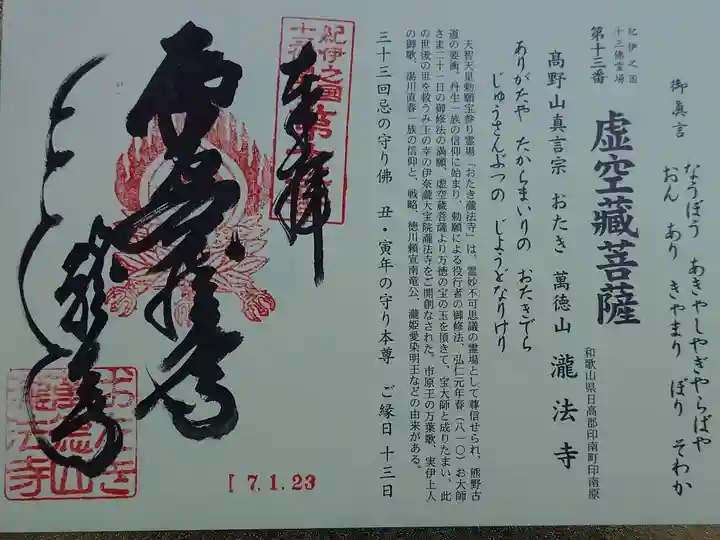 御眞言
なうぼう あきやしやぎやらばや
おん あり きやまり ぼり そわか
紀伊之国
十三佛霊場
第十三番
虚空藏菩薩
和歌山県日高郡印南町印南原
高野山真言宗 おたき 萬徳山 瀧法寺
ありがたや たからまいりの おたきでら
じゅうさんぶつの じようどなりけり
天智天皇勅願宝参り霊場「おたき瀧法寺」は、霊妙不可思議の霊場として尊信せられ、熊野古
道の要衝、丹生一族の信仰に始まり、勅願による役行者の御修法、弘仁元年春(八一〇)お大師
さま二十一日の御修法の満願、虚空蔵菩薩より万徳の宝の玉を頂きて、宝大師と成りたまい、此
の世後の世を救うみ玉の幸の伊奈瀧大宝院瀧法寺をご開創なされた。市原王の万葉歌、実伊上人
の御歌、湯川直春一族の信仰と、戦略、徳川頼宣南竜公、瀧姫愛染明王などの由来がある。
三十三回忌の守り佛 丑・寅年の守り本尊 ご縁日 十三日
紀伊之国
奉拝
瀧法寺
おたき
萬徳山
瀧法寺
7.1.23